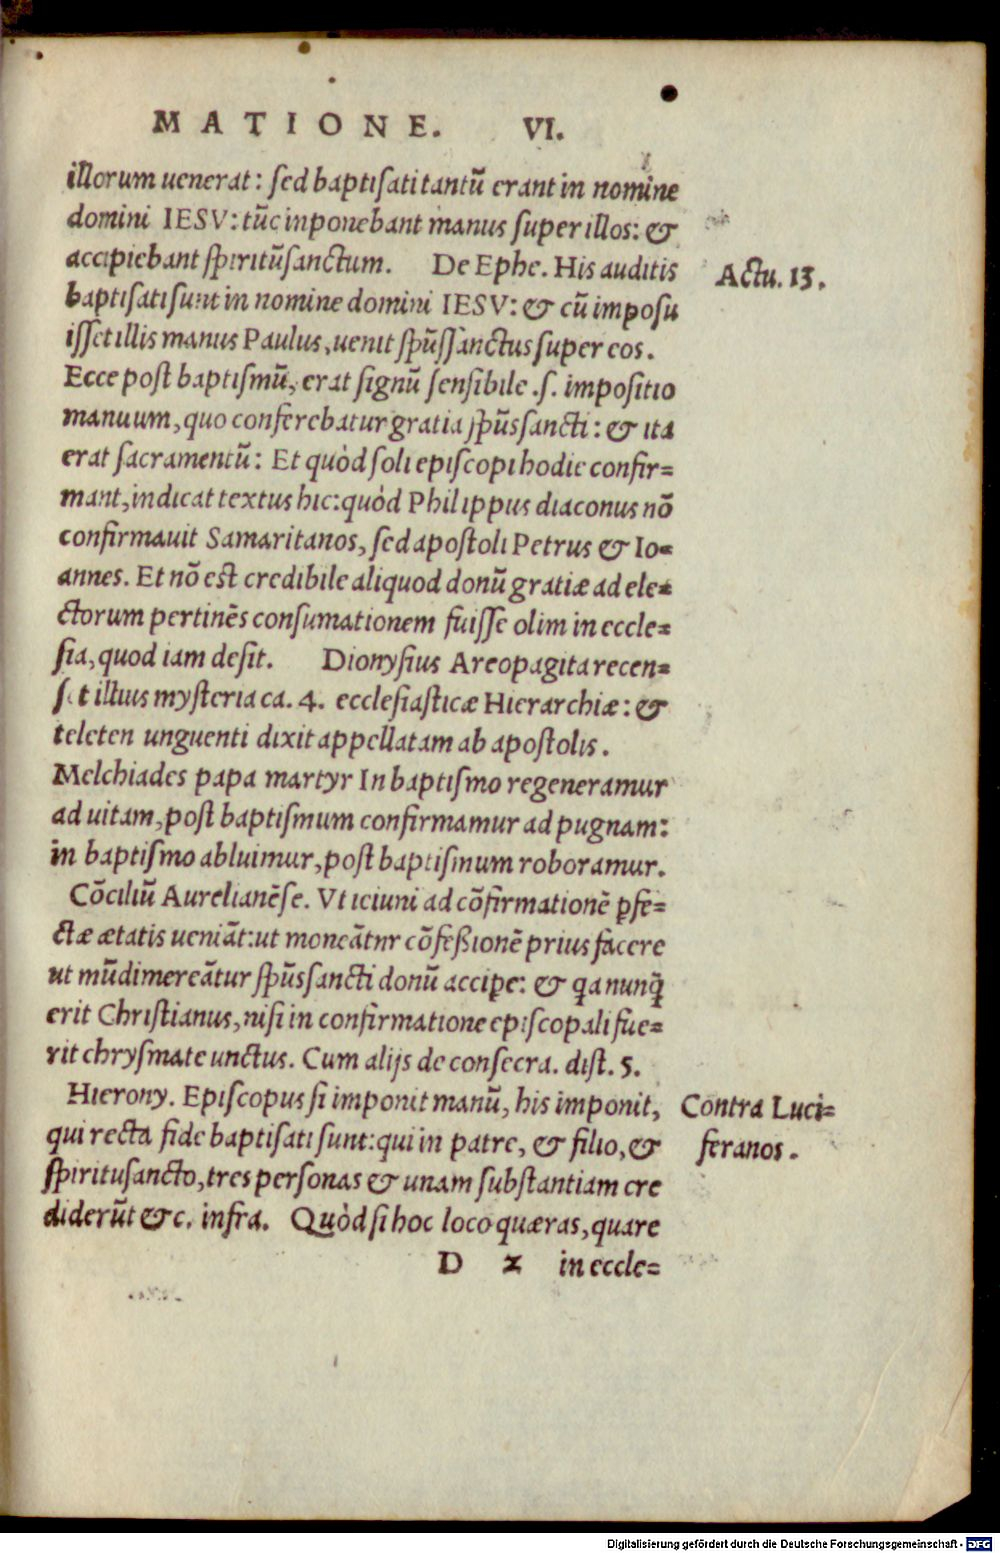 MATIONE. VI.
illorum uenerat: sed baptisati tantũ erant in nomine
domini IESV: tũc inponebant manus super illos: &
accipiebant spiritũsanctum. De Ephe. His auditis
Actu. 13.
baptisati sunt in nomine domini IESV: & cũ imposu
isset illis manus Paulus, uenit spũssanctus super eos.
Ecce post baptismũ, erat signũ sensibile .s. impositio
manuum, quo conferebatur gratia spũssancti: & ita
erat sacramentũ: Et quòd soli episcopi hodie confir=
mant, indicat textus hic: quòd Philippus diaconus nõ
confirmauit Samaritanos, sed apostoli Petrus & Io=
annes. Et nõ est credibile aliquod donũ gratiæ ad ele=
ctorum pertinẽs consumationem fuisse olim in eccle=
sia, quod iam desit. Dionysius Areopagita recen=
set illius mysteria ca. 4. ecclesiasticæ Hierarchiæ: &
teleten unguenti dixit appellatam ab apostolis.
Melchiades papa martyr In baptismo regeneramur
ad uitam, post baptismum confirmamur ad pugnam:
in baptismo abluimur, post baptismum roboramur.
Cõciliũ Aurelianẽse. Vt ieiuni ad cõfirmationẽ ꝑfe=
ctæ ætatis ueniãt: ut moneãtnr cõfeßionẽ prius facere
ut mũdi mereãtur spũssancti donũ acciꝑe: & qa nunq̃
erit Christianus, nisi in confirmatione episcopali fue=
rit chrysmate unctus. Cum alijs de consecra. dist. 5.
Hierony. Episcopus si imponit manũ, his imponit,
Contra Luci=
qui recta fide baptisati sunt: qui in patre, & filio, &
feranos.
spiritusancto, tres personas & unam substantiam cre
diderũt &c. infra. Quòd si hoc loco quæras, quare
D 2 in eccle=
Digitalisierung gefördert durch die Deutsche Forschungsgemeinschaft - DFG